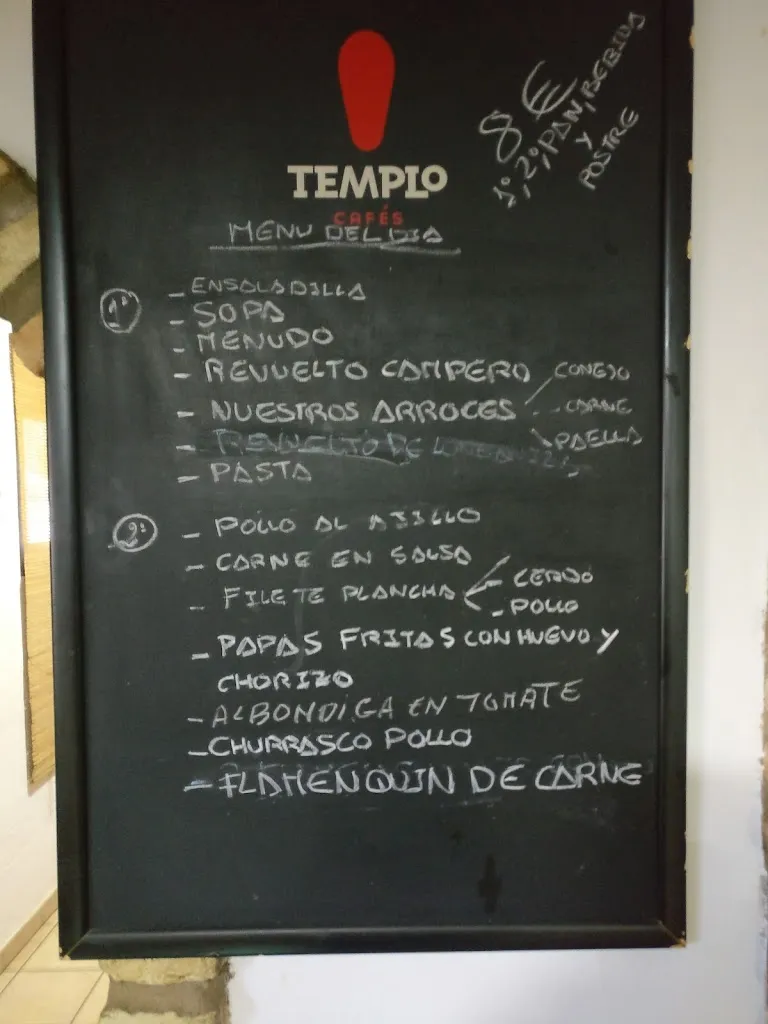 8 €
1º, 2º, PAN, BEBIDA
Y
POSTRE
TEMPLO
CAFÉS
MENU DEL DIA
1º
- ENSALADILLA
- SOPA
- MENUDO
- REVUELTO CAMPERO
- NUESTROS ARROCES - CONEJO
- CARNE
- PAELLA
- REVUELTO DE
- PASTA
2º
- POLLO AL AJILLO
- CARNE EN SALSA
- FILETE PLANCHA - CERDO
- POLLO
- PAPAS FRITAS CON HUEVO Y
CHORIZO
- ALBONDIGA EN TOMATE
- CHURRASCO POLLO
- FLAMENQUIN DE CARNE